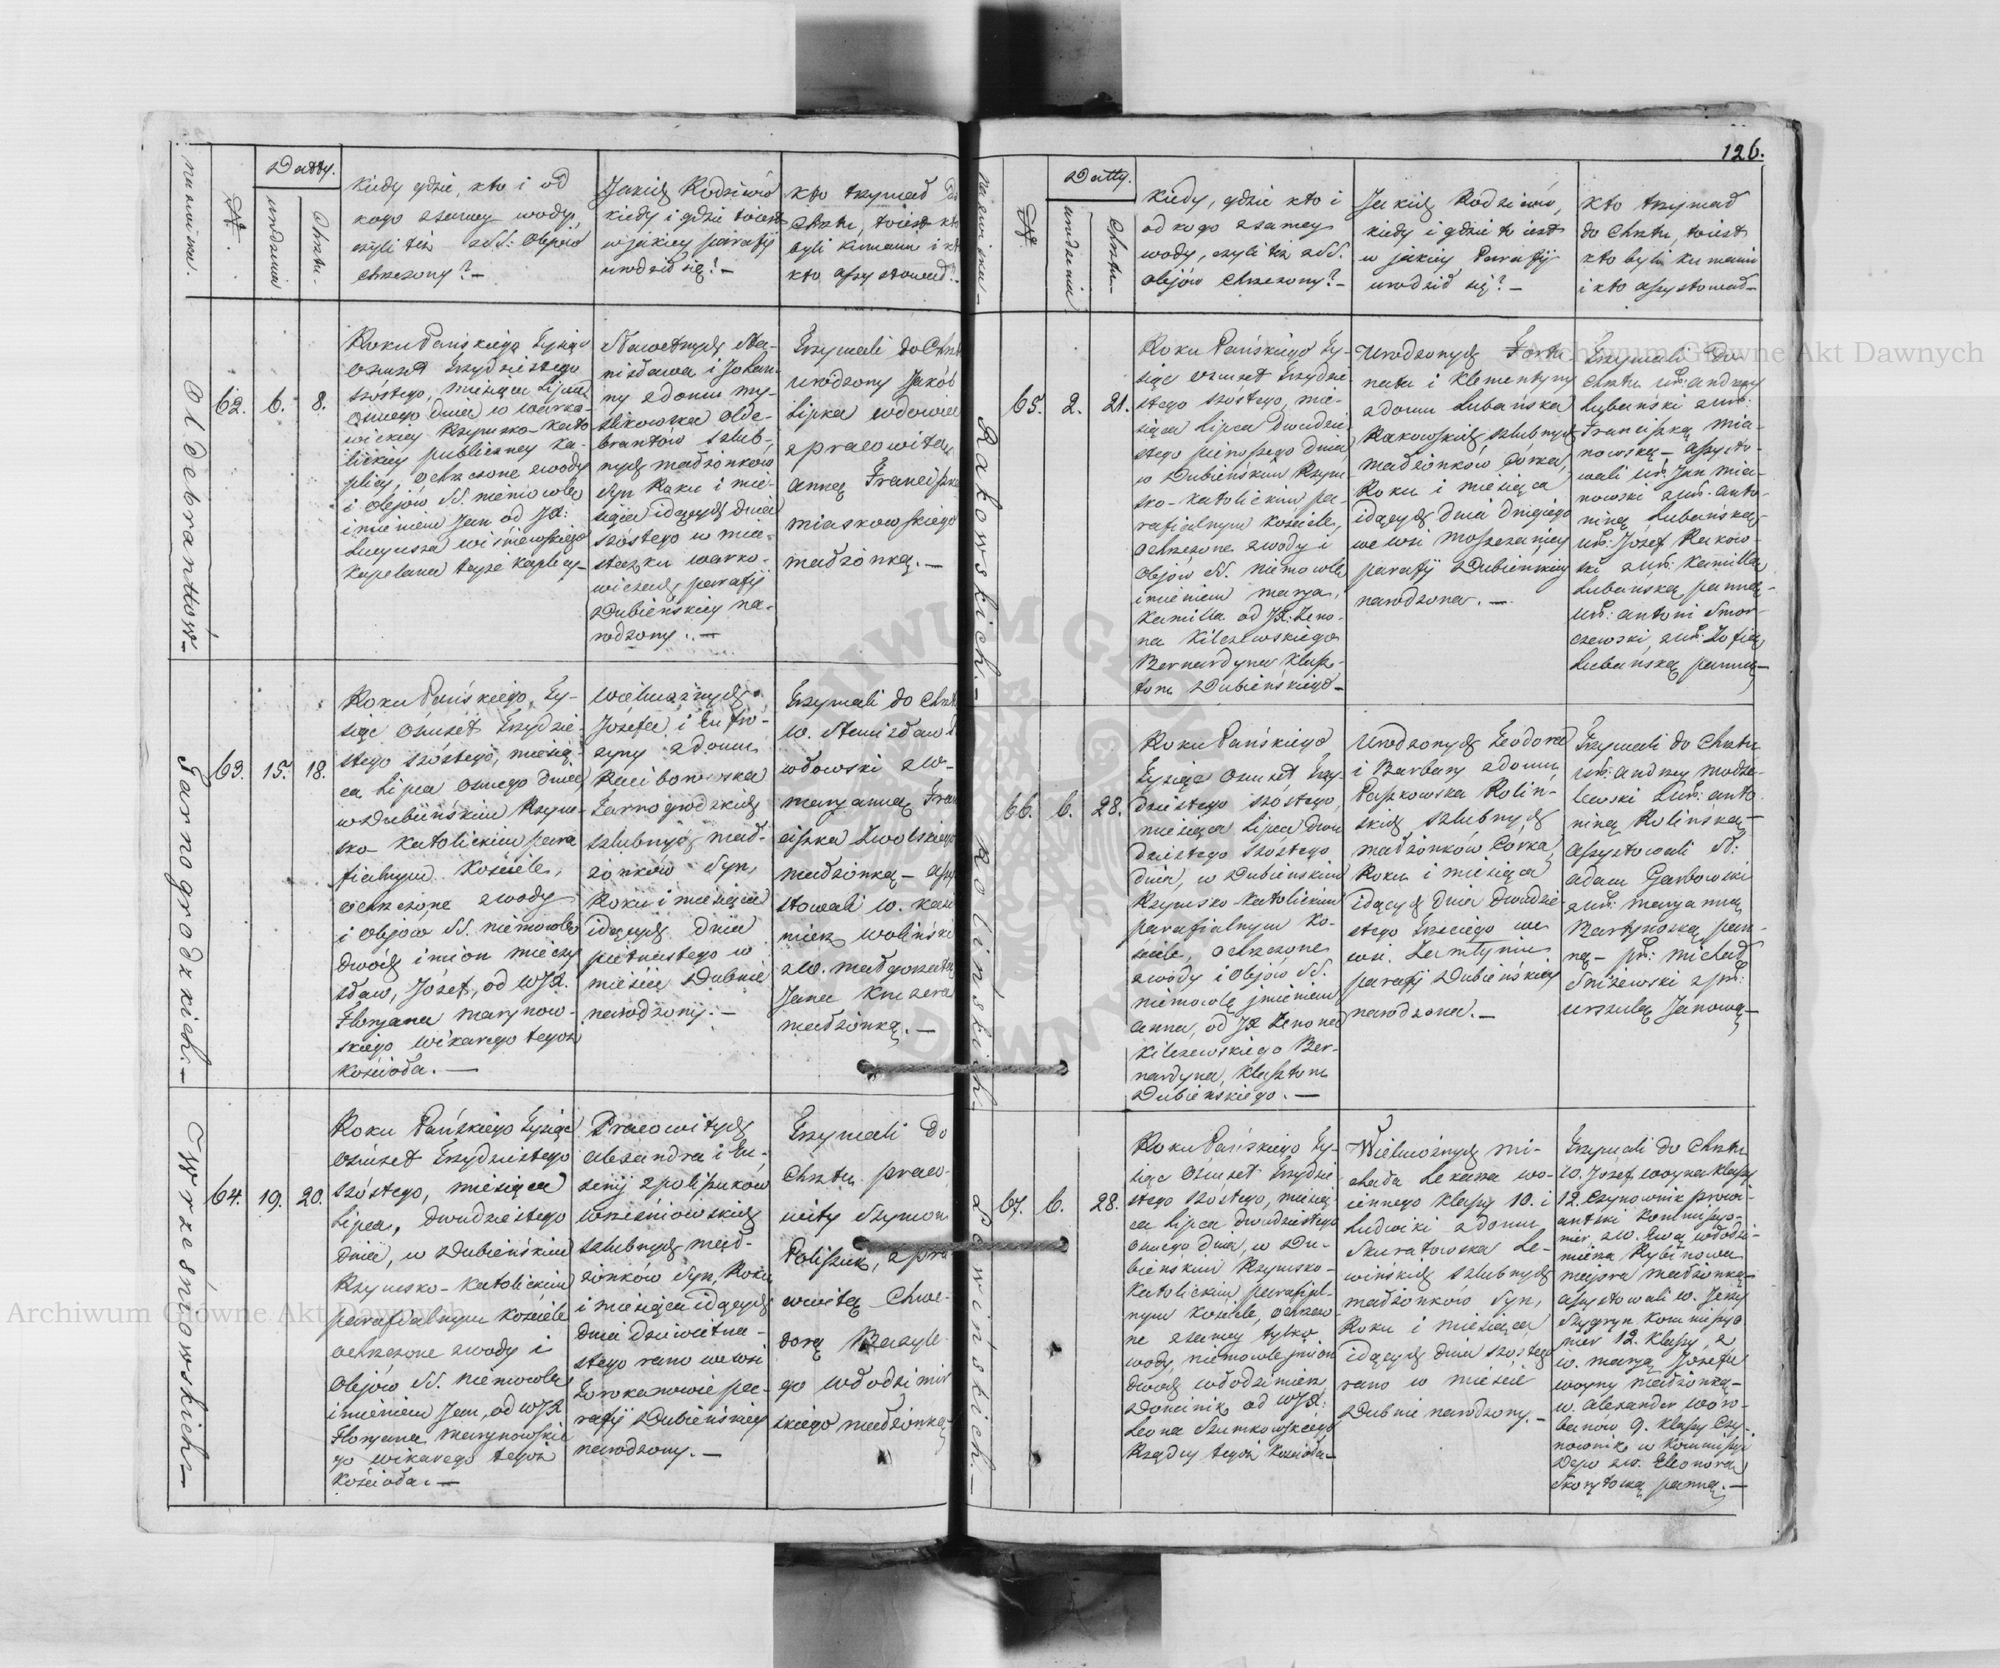 nazwiska.
№.
Datty.
urodzenia
Chrztu.
Kiedy gdzie, kto i od
kogo z samey wody,
czyli też z SS: Olejów
chrzczony? —
Jakich Rodziców
kiedy i gdzie to iest
w jakiey parafij
urodził się? —
Kto trzymał do
Chrztu, to iest kto
byli kumami i kt
kto assystował? —
Oldebrantów —
62.
6.
8.
Roku Pańskiego Tysiąc
Osmset Trzydziestego
szóstego, miesiąca Lipca
Osmego dnia w Warko-
wickiey Rzymsko-Kato
lickiey publiczney Ka-
plicy, Ochrzczone z wody
i Olejów SS. niemowle
imieniem Jan od JX:
Lucyusza Wiśniewskiego
Kapelana teyże Kaplicy —
Sławetnych Sta-
nisława i Johan-
ny z domu My-
slikowska Olde-
brantów szlub-
nych małżonków
Syn Roku i mie-
siąca idących dnia
szóstego w mia-
steczku Warko-
wiczach parafij
Dubieńskiey na-
rodzony. —
Trzymali do Chrzt
Urodzony Jakób
Lipka wdowiec
z pracowitą
Anną Franciszka
Miaskowskiego
małżonką. —
Tarnogrodzkich. —
63.
15.
18.
Roku Pańskiego, Ty-
siąc Osmset Trzydzie-
stego szóstego, miesią-
ca Lipca Osmego dnia
w Dubieńskim Rzym-
sko-Katolickim para
fialnym Kościele,
ochrzczone z wody
i Olejów SS. niemowle
dwóch imion Mieczy
sław, Józef, od WJX.
Floryana Marynow-
skiego Wikarego tegoż
Kościoła. —
Wielmożnych
Józefa i Eufro-
zyny z domu
Raciborowska
Tarnogrodzkich
szlubnych mał-
żonków Syn,
Roku i miesiąca
idących dnia
piętnastego w
mieście Dubnie
narodzony. —
Trzymali do Chrzt
W. Stanisław
wdowski z W-
Maryanną Fran
ciszka Zwolskiego
małżonką — Assy
stowali W. Kazi
mierz Woliński
z W. Małgorzatą
Jana Knezera
małżonką. —
Wrześniowskich —
64.
19.
20.
Roku Pańskiego Tysiąc
Osmset Trzydziestego
szóstego, miesiąca
Lipca, dwudziestego
dnia, w Dubieńskim
Rzymsko-Katolickim
parafialnym Kościele
ochrzczone z wody i
Olejów SS. niemowle
imieniem Jan, od WJX
Floryana Marynowskie
go wikarego tegoż
Kościoła. —
Pracowitych
Alexandra i Eu-
zenij z Polipuków
Wrześniowskich
szlubnych mał-
żonków Syn, Roku
i miesiąca idących
dnia dziewiętna-
stego rano we wsi
Torokanowie pa-
rafij Dubieńskiey
narodzony. —
Trzymali do
Chrztu praco-
wity Szymon
Poliszuk, z pra
cowitą Chwe-
dorą Bazyle-
go Włodzimir
skiego małżonką
126.
nazwiska —
№.
Datty.
urodzenia
Chrztu —
Kiedy, gdzie kto i
od kogo z samey
wody, czyli też z SS.
Olejów chrzczony? —
Jakich Rodziców,
kiedy i gdzie to iest
w jakiey Parafij
urodził się? —
Kto trzymał
do Chrztu, to iest
kto byli kumami
i kto assystował —
Rakowskich. —
65.
2.
21.
Roku Pańskiego Ty-
siąc Osmset Trzydzie
stego szóstego, mie-
siąca Lipca dwudzie
stego pierwszego dnia
w Dubieńskim Rzym
sko-Katolickim pa-
rafialnym Kościele,
ochrzczone z wody i
Olejów SS. niemowle
imieniem Marya,
Kamilla od JX. Zeno-
na Kilczewskiego
Bernardyna Klasz-
toru Dubieńskiego —
Urodzonych Fortu-
nata i Klementyny
z domu Lubańska
Rakowskich szlubnych
małżonków Córka,
Roku i miesiąca
idących dnia drugiego
we wsi Moszczaniey
parafij Dubieńskiey
narodzona. —
Trzymali do
chrztu Ur: Andrzey
Lubański z Ur:
Franciszką Mia-
nowską — Assysto-
wali Ur: Jan Mia-
nowski z Ur: Anto-
niną Lubańską,
Ur: Jozef Rakow-
ski z Ur: Kamillą
Lubańską panną,
Ur: Antoni Smor-
czewski, z Ur: Zofią
Lubańską panną —
Rolińskich —
66.
6.
28.
Roku Pańskiego
Tysiąc Osmset Trzy-
dziestego szóstego,
miesiąca Lipca dwu
dziestego szóstego
dnia, w Dubieńskim
Rzymsko Katolickim
parafialnym Ko-
ściele, ochrzczone
z wody i Olejów SS.
niemowlę jmieniem
Anna, od JX Zenona
Kilczewskiego Ber-
nardyna, Klasztoru
Dubieńskiego. —
Urodzonych Teodora
i Barbary z domu
Paszkowska Roliń-
skich szlubnych
małżonków Córka,
Roku i miesiąca
idących dnia dwudzie
stego trzeciego we
wsi. Zamłyniu
parafij Dubieńskiey
narodzona. —
Trzymali do Chrztu
Ur: Andrzey Modze-
lewski z Ur: Anto
niną Rolinską —
Assystowali U:
Adam Garbowski
z Ur: Maryanną
Martynoską pan-
ną — pr: Michał
Sniżewski z pr:
Urszulą Janową —
Lewińskich —
67.
6.
28.
Roku Pańskiego Ty-
siąc Osmset Trzydzie
stego szóstego, miesią
ca Lipca dwudziestego
osmego dnia, w Du-
bieńskim Rzymsko-
Katolickim parafial-
nym Kościele, ochrzczo
ne z samey tylko
wody, niemowle jmion
dwóch Włodzimierz
Dominik od WJX:
Leona Szumkowskiego
Rządcy tegoż Kościoła —
Wielmożnych Mi-
chała Lekarza wo-
iennego klassy 10. i
Ludwiki z domu
Skuratowska Le-
wińskich szlubnych
małżonków Syn,
Roku i miesiąca
idących dnia szóstego
rano w mieście
Dubnie narodzony. —
Trzymali do Chrztu
W. Jozef Woyna klassy
12. Czynownik prowi-
antski Kommissyo-
ner, z W. Ewą Włodzi-
mierza Rybinowa
majora małżonką —
Assystowali W. Jerzy
Szygryn Kommissyo
ner 12. klassy, z
W. Maryą Józefa
Woyny małżonką —
W. Alexander Wor-
banów 9. klassy Czy-
nownik w Kommissyi
Depo z W. Eleonorą
Skorytową panną. —
Archiwum Główne Akt Dawnych
Archiwum Główne Akt Dawnych
ARCHIWUM GŁÓWNE AKT DAWNYCH